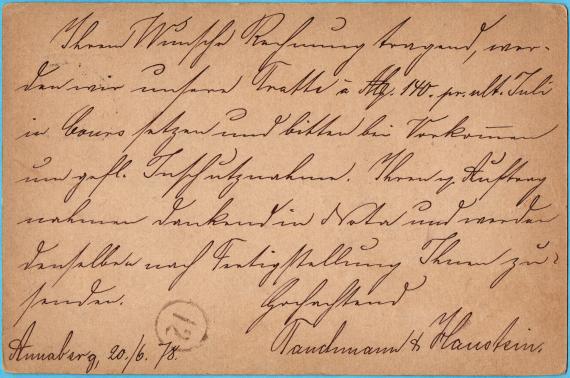 Ihrem Wunsche Rechnung tragend, wer-
den wir unsere Tratte à Mk. 140.- pr. ult. Juli
in Cours setzen und bitten bei Vorkommen
um gefl. Inschutznahme. Ihren Auftrag
nahmen dankend in Nota und werden
denselben nach Fertigstellung Ihnen zu-
senden. Hochachtend
Annaberg, 20./6. 78. Tandmann & Haustein.
12